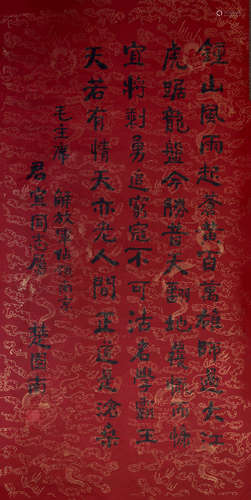 鍾山風雨起蒼黃百萬雄師過大江
虎踞龍盤今勝昔天翻地覆慨而慷
宜將剩勇追窮寇不可沽名學霸王
天若有情天亦老人間正道是滄桑
毛主席 解放軍佔領南京
君宜同志屬 楚圖南